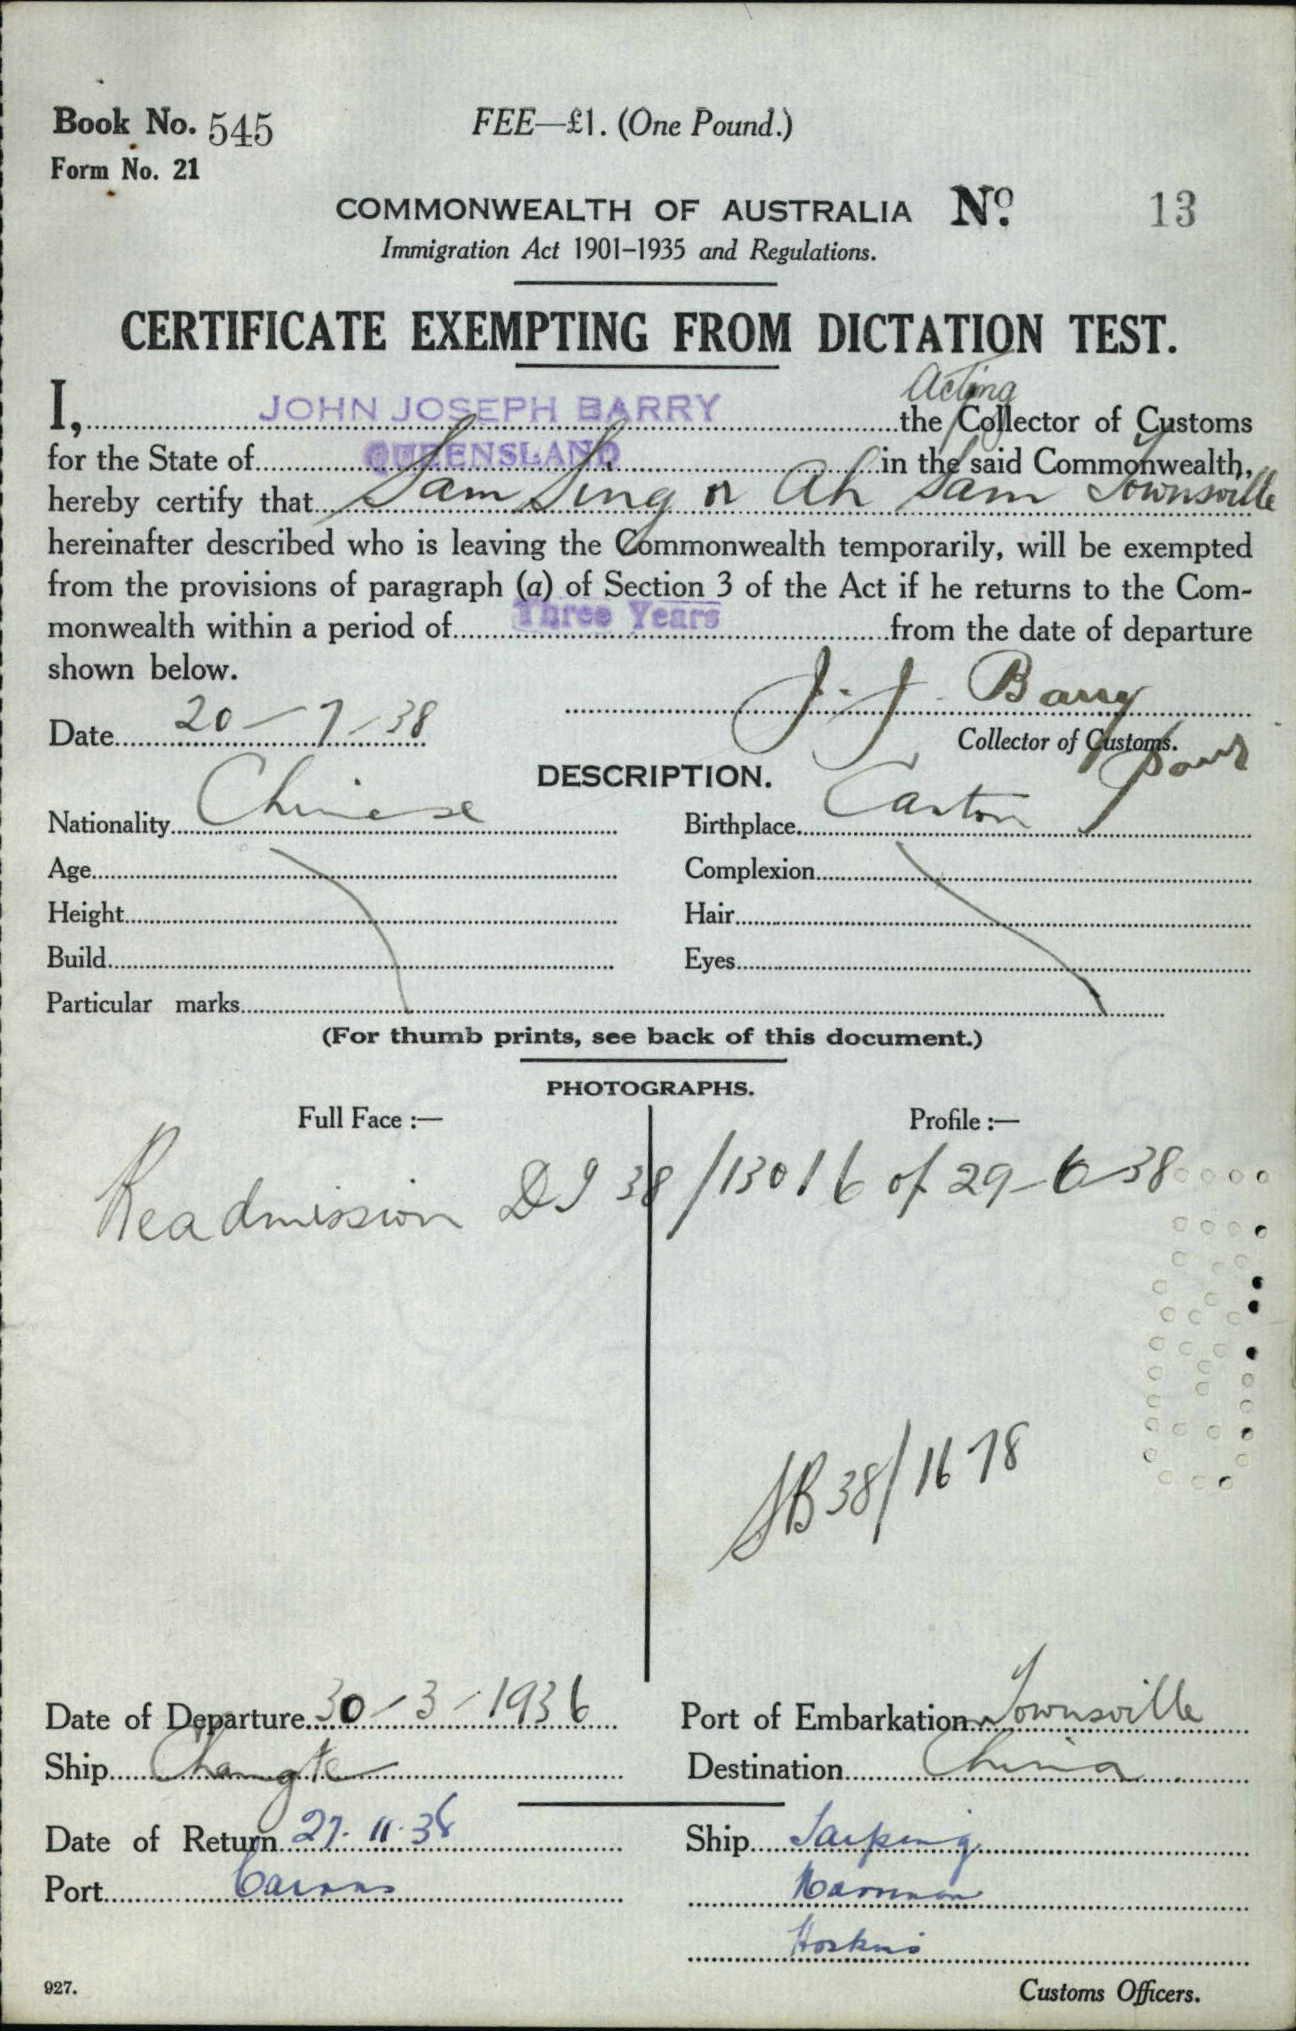 Book No. 545
FEE—£1. (One Pound.)
Form No. 21
COMMONWEALTH OF AUSTRALIA No. 13
Immigration Act 1901-1935 and Regulations.
CERTIFICATE EXEMPTING FROM DICTATION TEST.
Acting
I, JOHN JOSEPH BARRY the Collector of Customs
for the State of QUEENSLAND in the said Commonwealth,
hereby certify that Sam Sing or Ah Sam Townsville
hereinafter described who is leaving the Commonwealth temporarily, will be exempted
from the provisions of paragraph (a) of Section 3 of the Act if he returns to the Com-
monwealth within a period of Three Years from the date of departure
shown below.
J. J. Barry
Date 20-7-38
Collector of Customs.
DESCRIPTION.
Nationality Chinese Birthplace Canton
Age Complexion
Height Hair
Build Eyes
Particular marks
(For thumb prints, see back of this document.)
PHOTOGRAPHS.
Full Face :— Profile :—
Readmission DI 38/13016 of 29-6-38
SB 38/1678
Date of Departure 30-3-1936 Port of Embarkation Townsville
Ship Changte Destination China
Date of Return 27.11.38 Ship Taiping
Port Cairns
Hoskins
927.
Customs Officers.